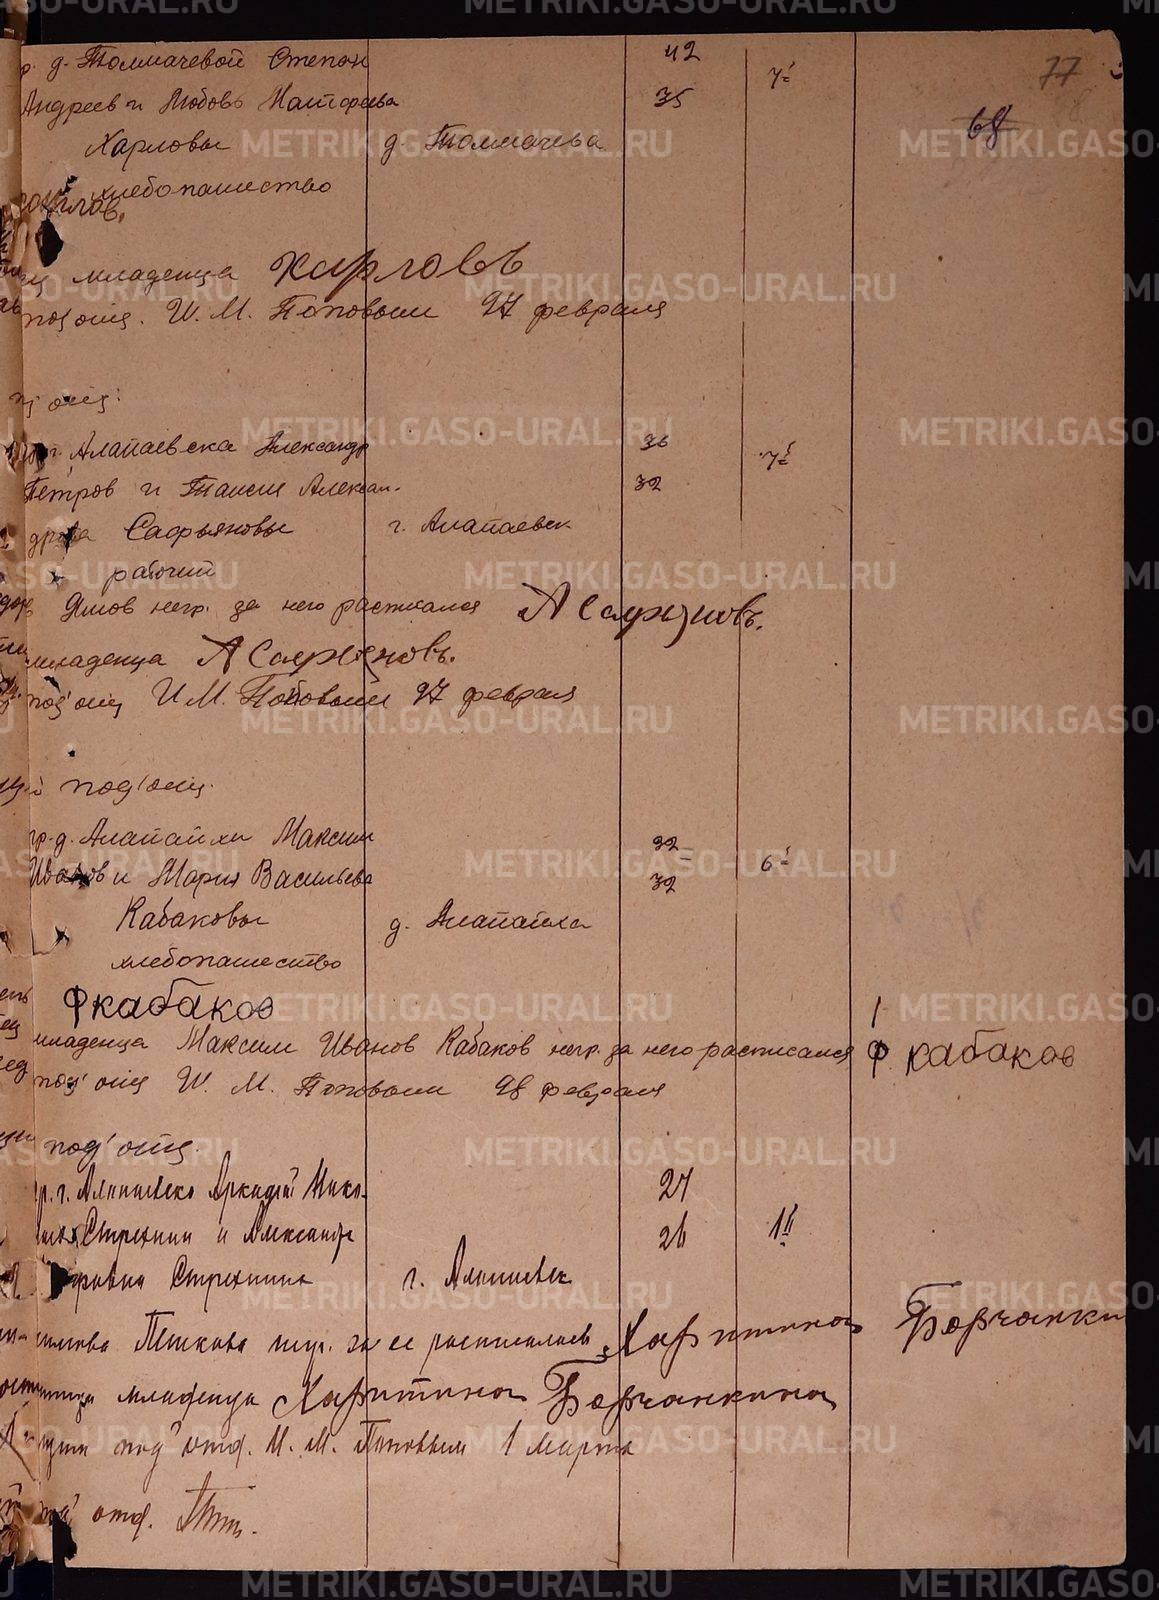 гр. д. Толмачевой Степан 42 7й 77
Андреев и Любовь Матфеева 35 68
Харловы д. Толмачева
хлебопашество
младенца Харловъ
под'отд. И. М. Поповым 27 февраля
отд.
г. Алапаевска Александр 36 7й
Петров и Таисия Алексан- 32
дрова Сафьяновы г. Алапаевск
рабочий
негр. за него расписался А Сафьяновъ.
младенца А Сафьяновъ.
под'отд И М. Поповым 27 февраля
под'отд.
гр. д. Алапаихи Максим 32 6й
Иванов и Мария Васильева 32
Кабаковы д. Алапаиха
хлебопашество
Ф Кабаков
младенца Максим Иванов Кабаков негр. за него расписался Ф Кабаков
под'отд И. М. Поповым 28 февраля
под'отд.
гр. г. Алапаевска Аркадий Нико- 27
Стрехнин и Александра 26 1й
Стрехнина г. Алапаевск
негр. за ее расписалась Харитина Борчанки
младенца Харитина Борчанкина
под'отд. И. М. Поповым 1 марта
отд.
METRIKI.GASO-URAL.RU